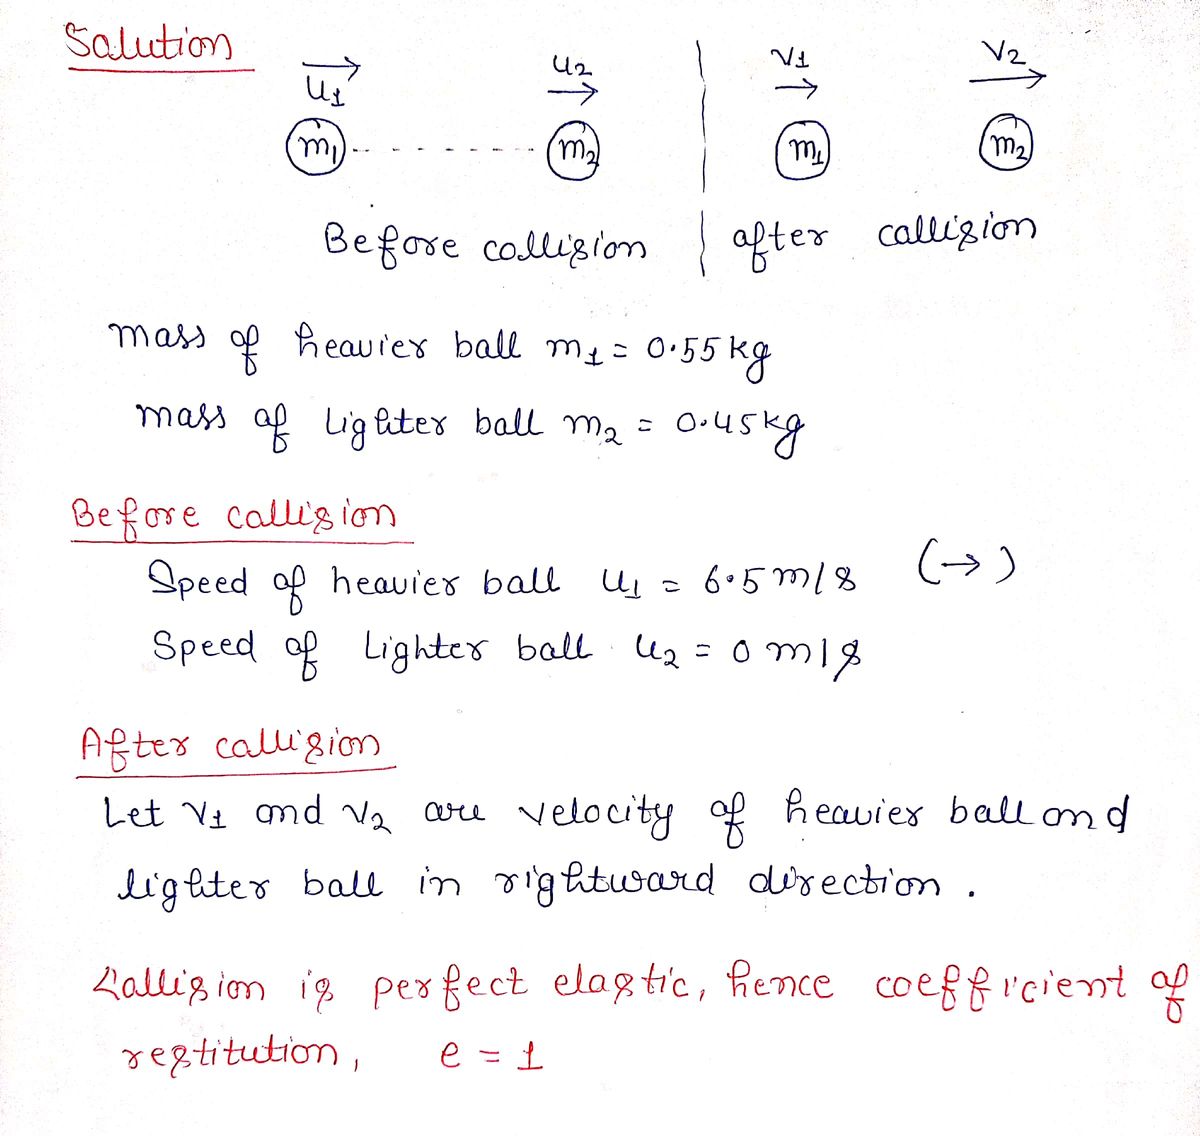 Salution
u1 u2 v1 v2
m1 m2 m1 m2
Before collision after callision
mass of heavier ball m1 = 0.55 kg
mass of Lighter ball m2 = 0.45 kg
Before callision
Speed of heavier ball u1 = 6.5 m/s (→)
Speed of Lighter ball u2 = 0 m/s
After callision
Let v1 and v2 are velocity of heavier ball and
lighter ball in rightward direction.
Callision is perfect elastic, hence coefficient of
restitution, e = 1